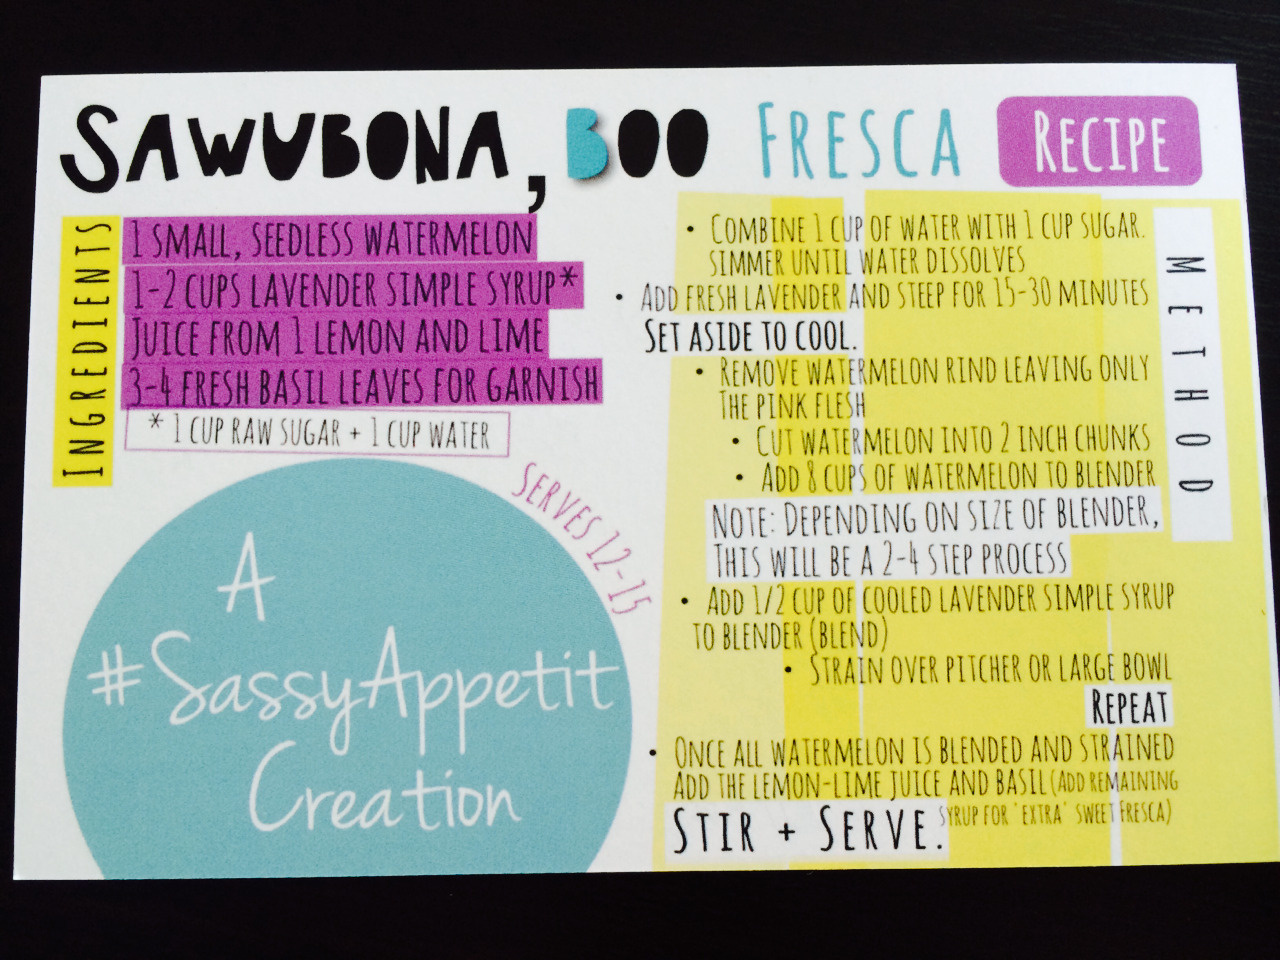 SAWUBONA, BOO FRESCA RECIPE
INGREDIENTS
1 SMALL, SEEDLESS WATERMELON
1-2 CUPS LAVENDER SIMPLE SYRUP*
JUICE FROM 1 LEMON AND LIME
3-4 FRESH BASIL LEAVES FOR GARNISH
* 1 CUP RAW SUGAR + 1 CUP WATER
SERVES 12-15
A
#SassyAppetit
Creation
METHOD
• COMBINE 1 CUP OF WATER WITH 1 CUP SUGAR.
SIMMER UNTIL WATER DISSOLVES
• ADD FRESH LAVENDER AND STEEP FOR 15-30 MINUTES
SET ASIDE TO COOL.
• REMOVE WATERMELON RIND LEAVING ONLY
THE PINK FLESH
• CUT WATERMELON INTO 2 INCH CHUNKS
• ADD 8 CUPS OF WATERMELON TO BLENDER
NOTE: DEPENDING ON SIZE OF BLENDER,
THIS WILL BE A 2-4 STEP PROCESS
• ADD 1/2 CUP OF COOLED LAVENDER SIMPLE SYRUP
TO BLENDER (BLEND)
• STRAIN OVER PITCHER OR LARGE BOWL
REPEAT
• ONCE ALL WATERMELON IS BLENDED AND STRAINED
ADD THE LEMON-LIME JUICE AND BASIL (ADD REMAINING
SYRUP FOR 'EXTRA' SWEET FRESCA)
STIR + SERVE.